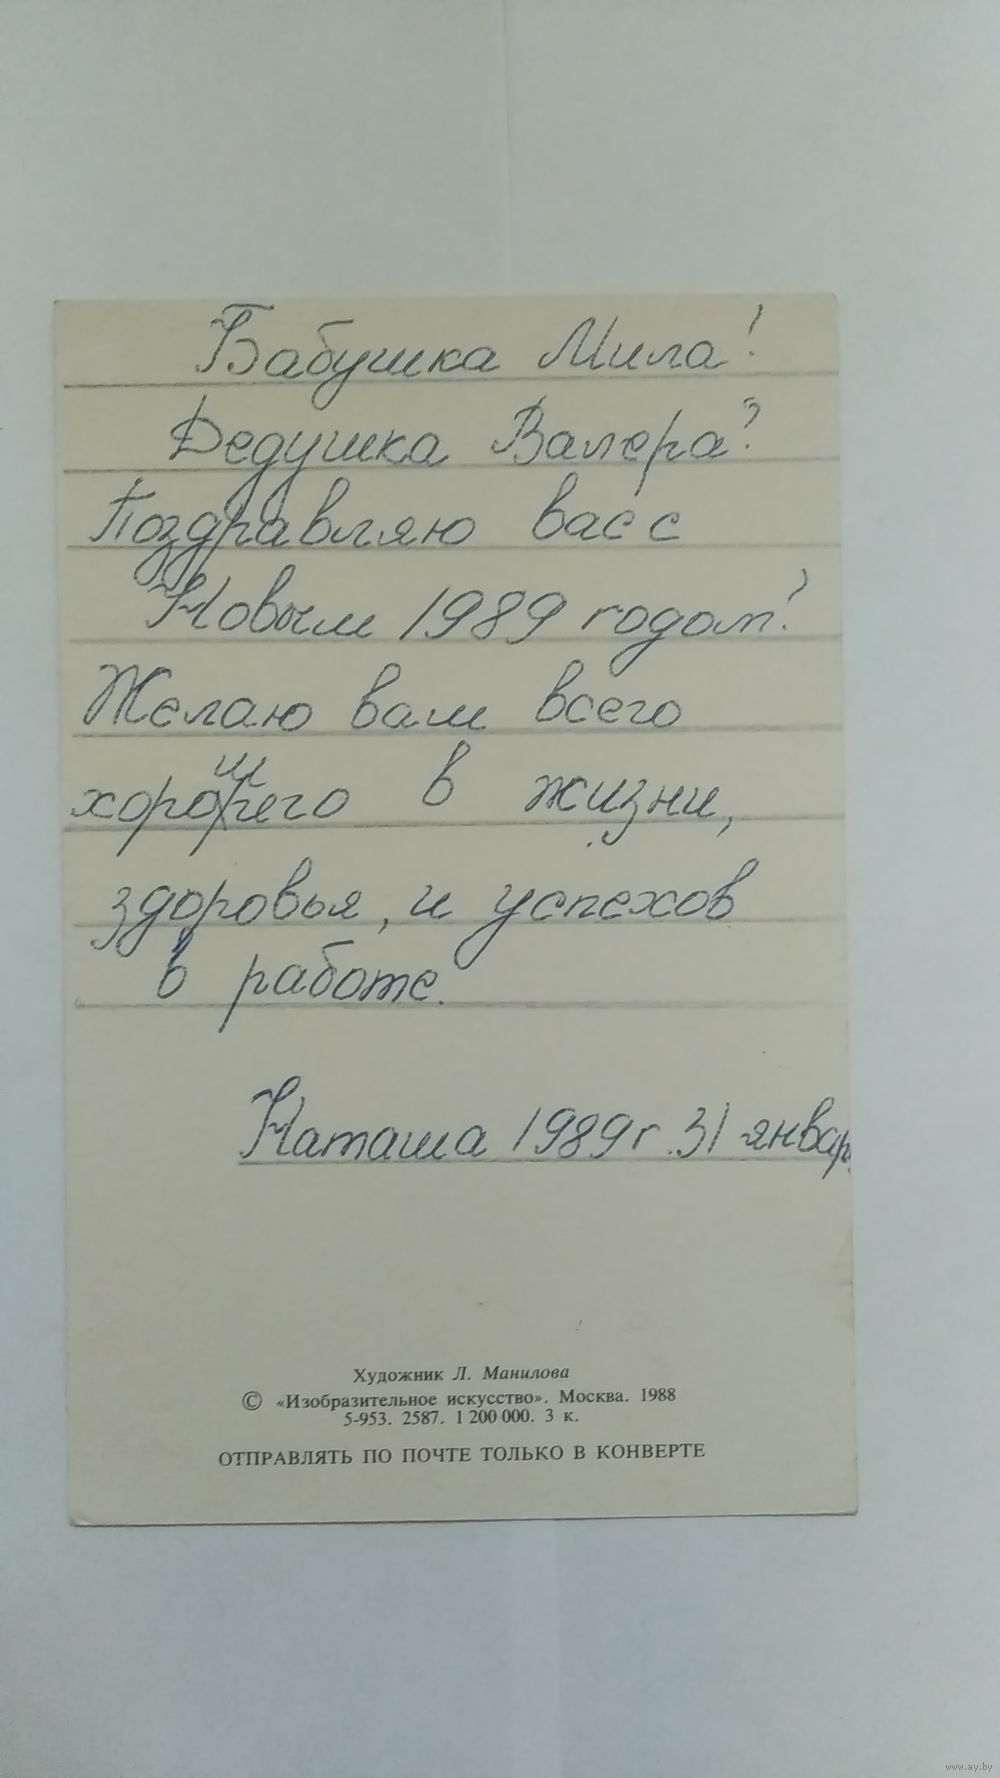 Бабушка Мила!
Дедушка Валера!
Поздравляю вас с
Новым 1989 годом!
Желаю вам всего
хорошего в жизни,
здоровья, и успехов
в работе.
Наташа 1989 г. 31 январ
Художник Л. Манилова
© «Изобразительное искусство». Москва. 1988
5-953. 2587. 1 200 000. 3 к.
ОТПРАВЛЯТЬ ПО ПОЧТЕ ТОЛЬКО В КОНВЕРТЕ
www.ay.by